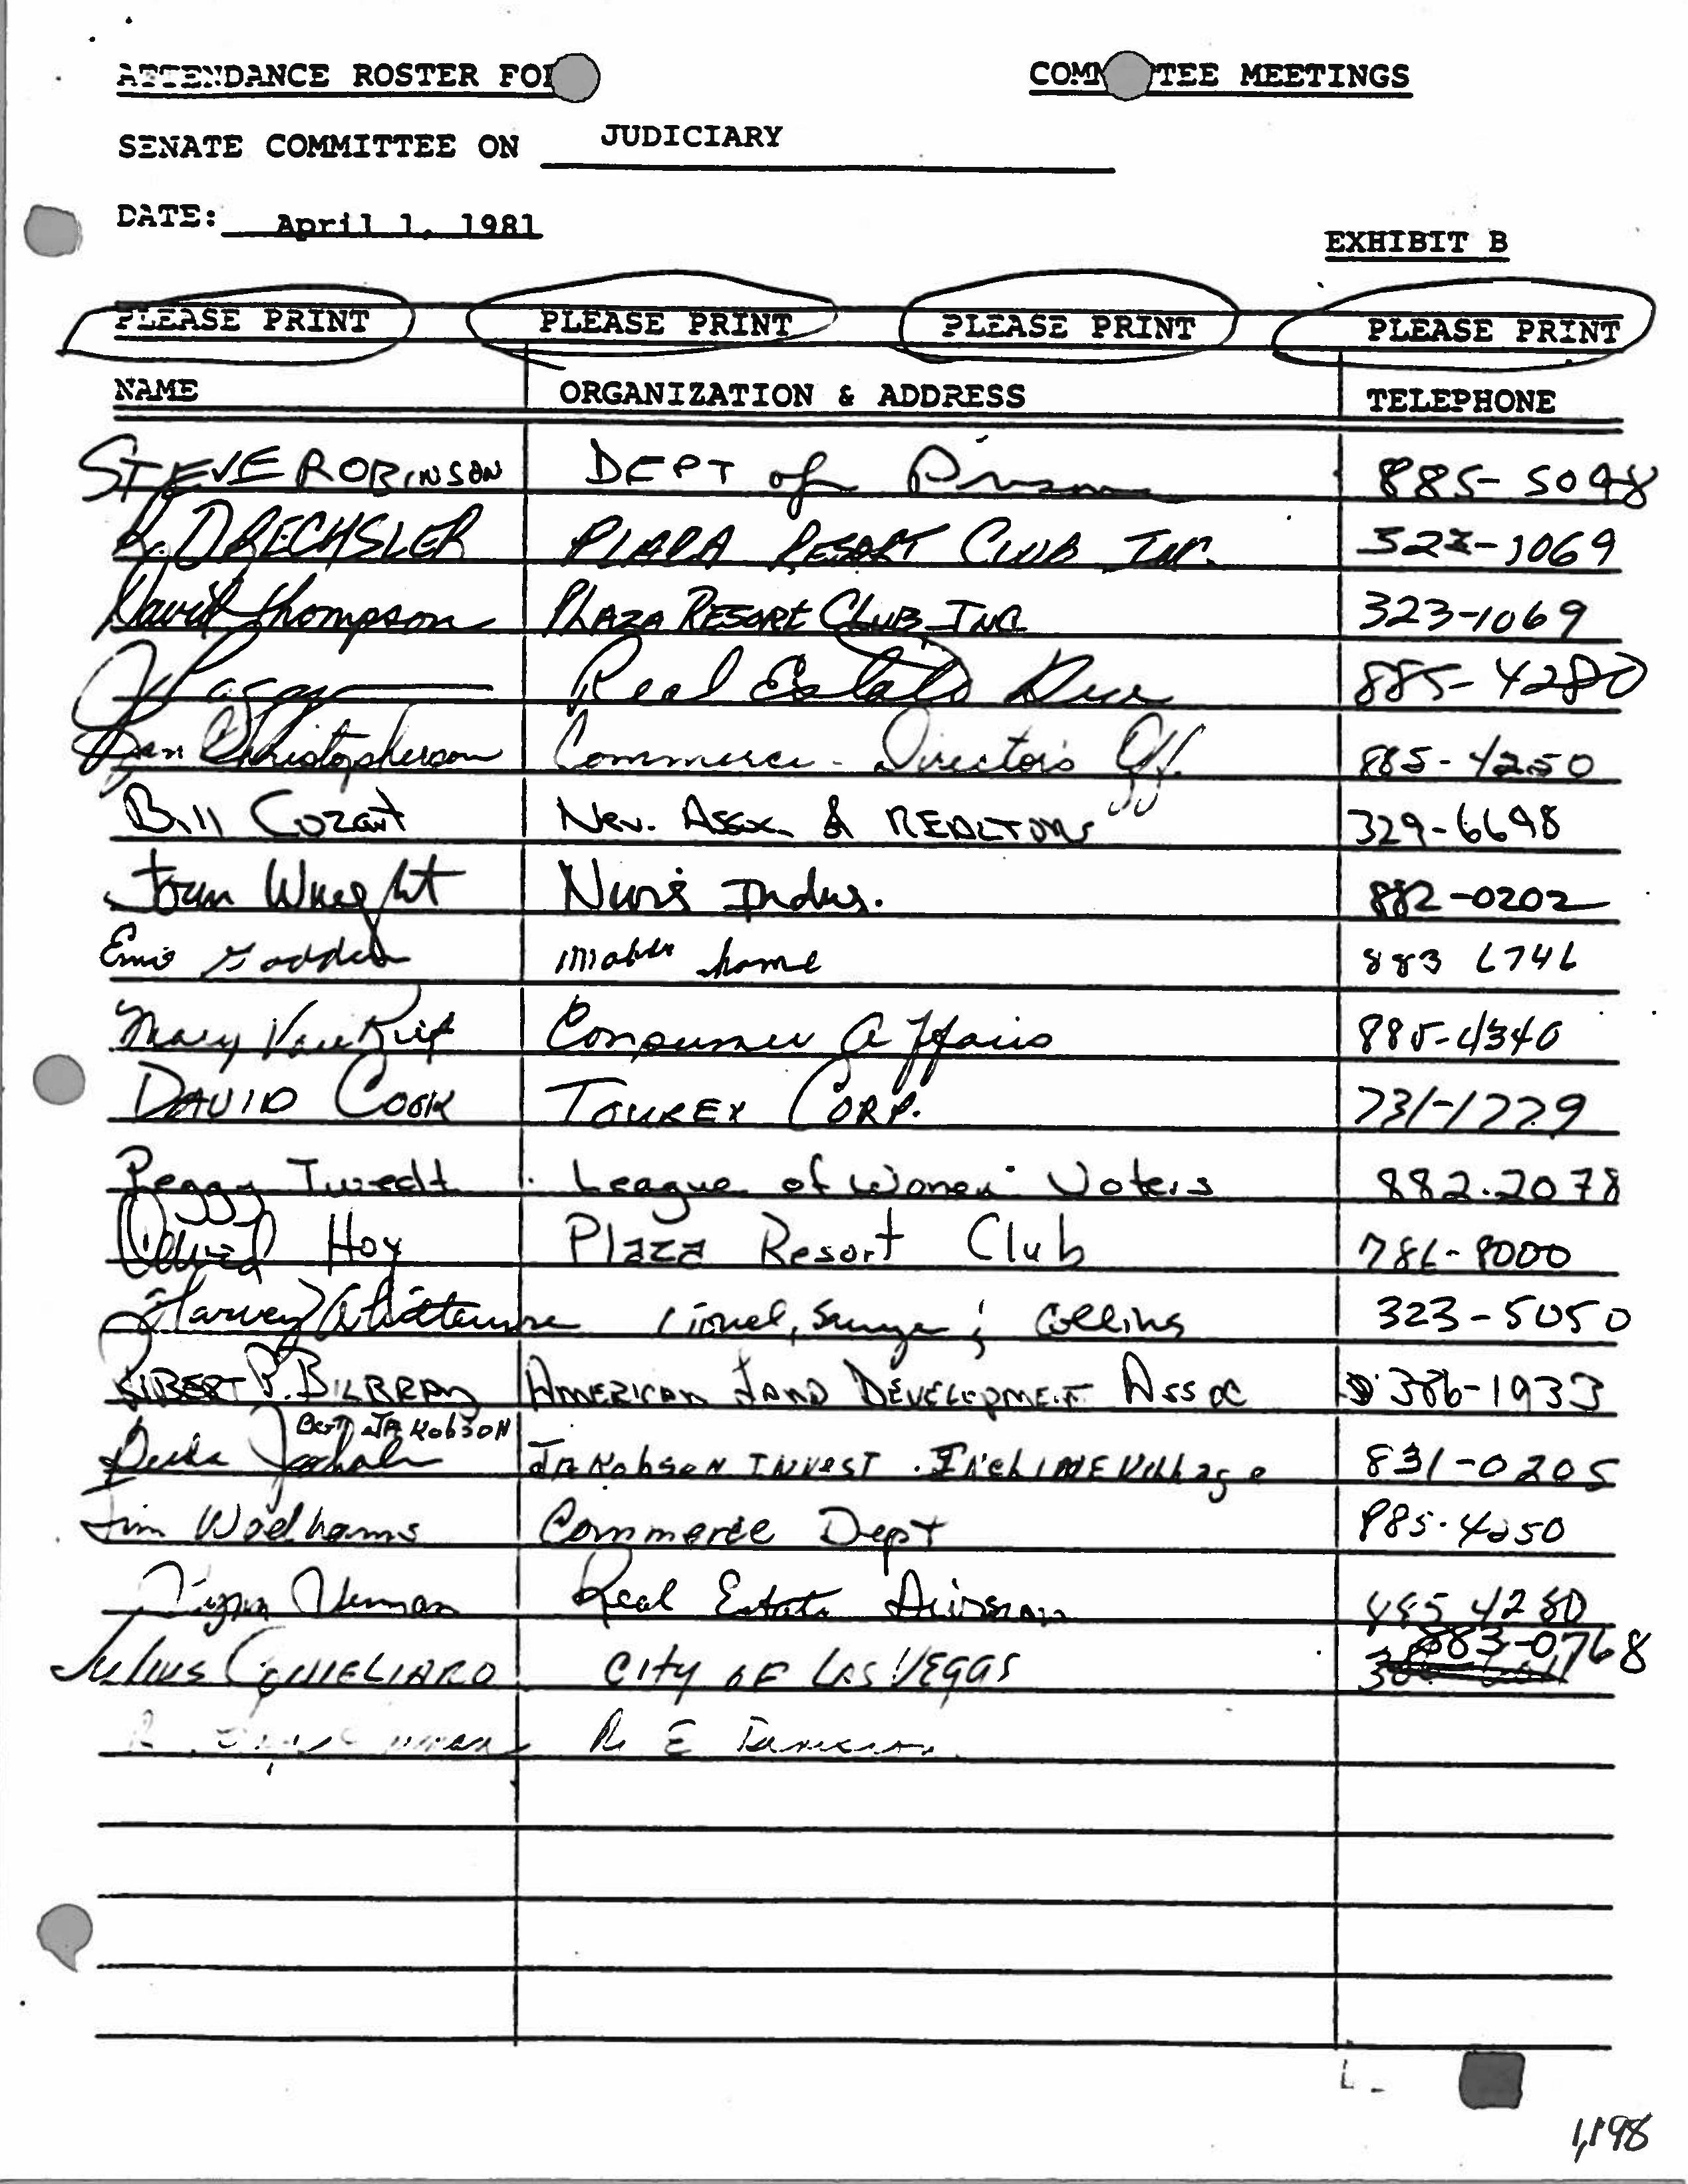 ATTENDANCE ROSTER FOR COMMITTEE MEETINGS
SENATE COMMITTEE ON JUDICIARY
DATE: April 1, 1981
EXHIBIT B
PLEASE PRINT PLEASE PRINT PLEASE PRINT PLEASE PRINT
NAME ORGANIZATION & ADDRESS TELEPHONE
STEVE ROBINSON DEPT of Prisons 885-5098
R. DRECHSLER PLAZA RESORT CLUB INC. 323-1069
David Thompson PLAZA RESORT CLUB INC 323-1069
Real Estate Div 885-4280
Jan Christopherson Commerce - Director's Off. 885-4250
Bill Cozart Nev. Assoc. of REALTORS 329-6698
Joan Wright Nurs Indus. 882-0202
mobile home 883 6746
Mary Consumer Affairs 885-4340
DAVID COOK TOUREX CORP. 731-1229
Peggy Twedt League of Women Voters 882.2078
David Hoy Plaza Resort Club 786-8000
Harvey Whittemore Lionel, Sawyer & Collins 323-5050
ROBERT P. BILBRAY AMERICAN LAND DEVELOPMENT ASSOC 386-1933
JAKobSON
JAKobsoN INVEST. INCLINE Village 831-0205
Jim Wadhams Commerce Dept 885-4250
Real Estate Division 885 4280
883-0768
Julius CONIGLIARO City OF LAS VEGAS
R E
1,198